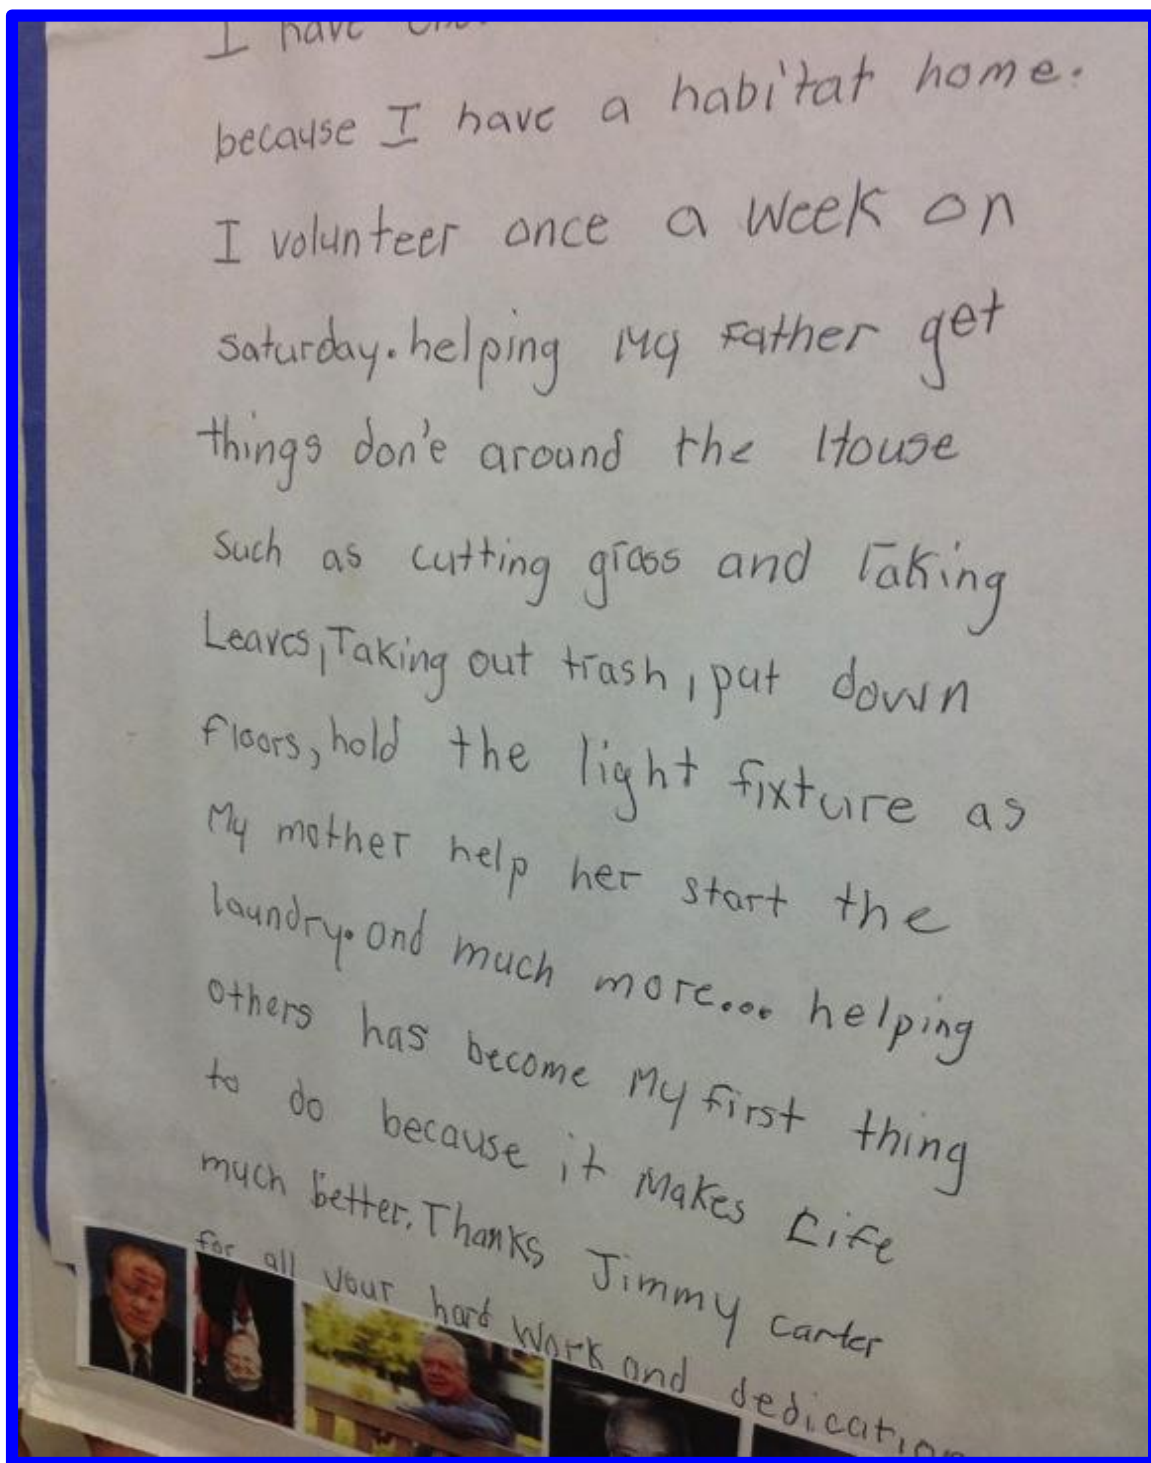 I have
because I have a habitat home.
I volunteer once a week on
saturday. helping My Father get
things don'e around the House
such as cutting grass and raking
Leaves, Taking out trash, put down
floors, hold the light fixture as
My mother help her start the
laundry. and much more... helping
others has become My first thing
to do because it Makes Life
much better. Thanks Jimmy carter
for all your hard Work and dedication